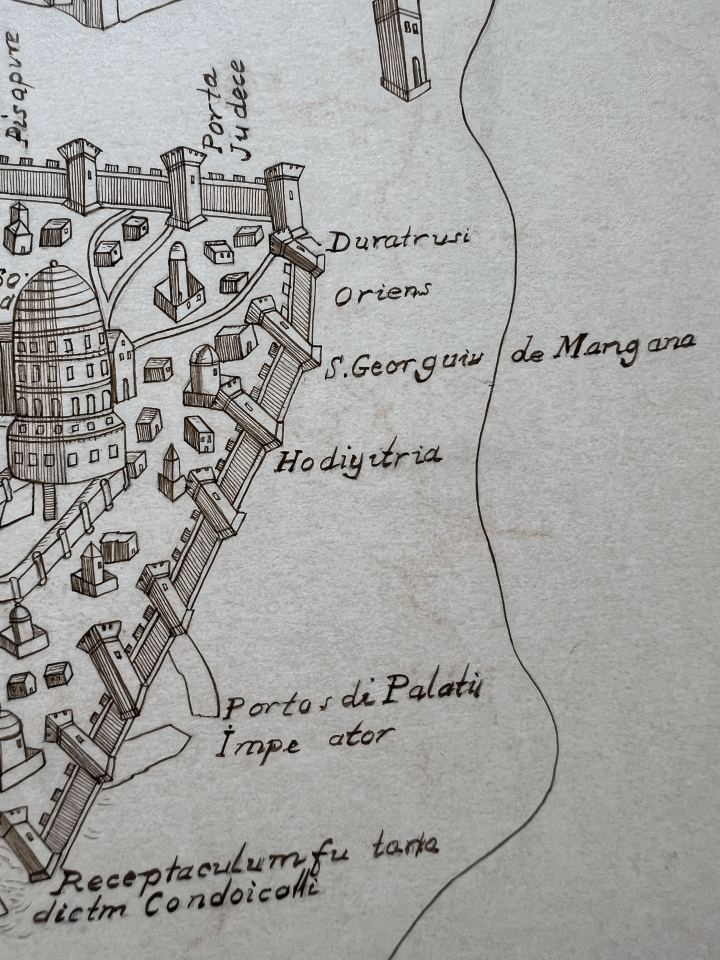 Pisapure
Porta
Judece
Duratrusi
Oriens
S. Georguiu de Mangana
Hodiyitria
Portas di Palatii
Impe ator
Receptaculum fu
dictm Condoicalli